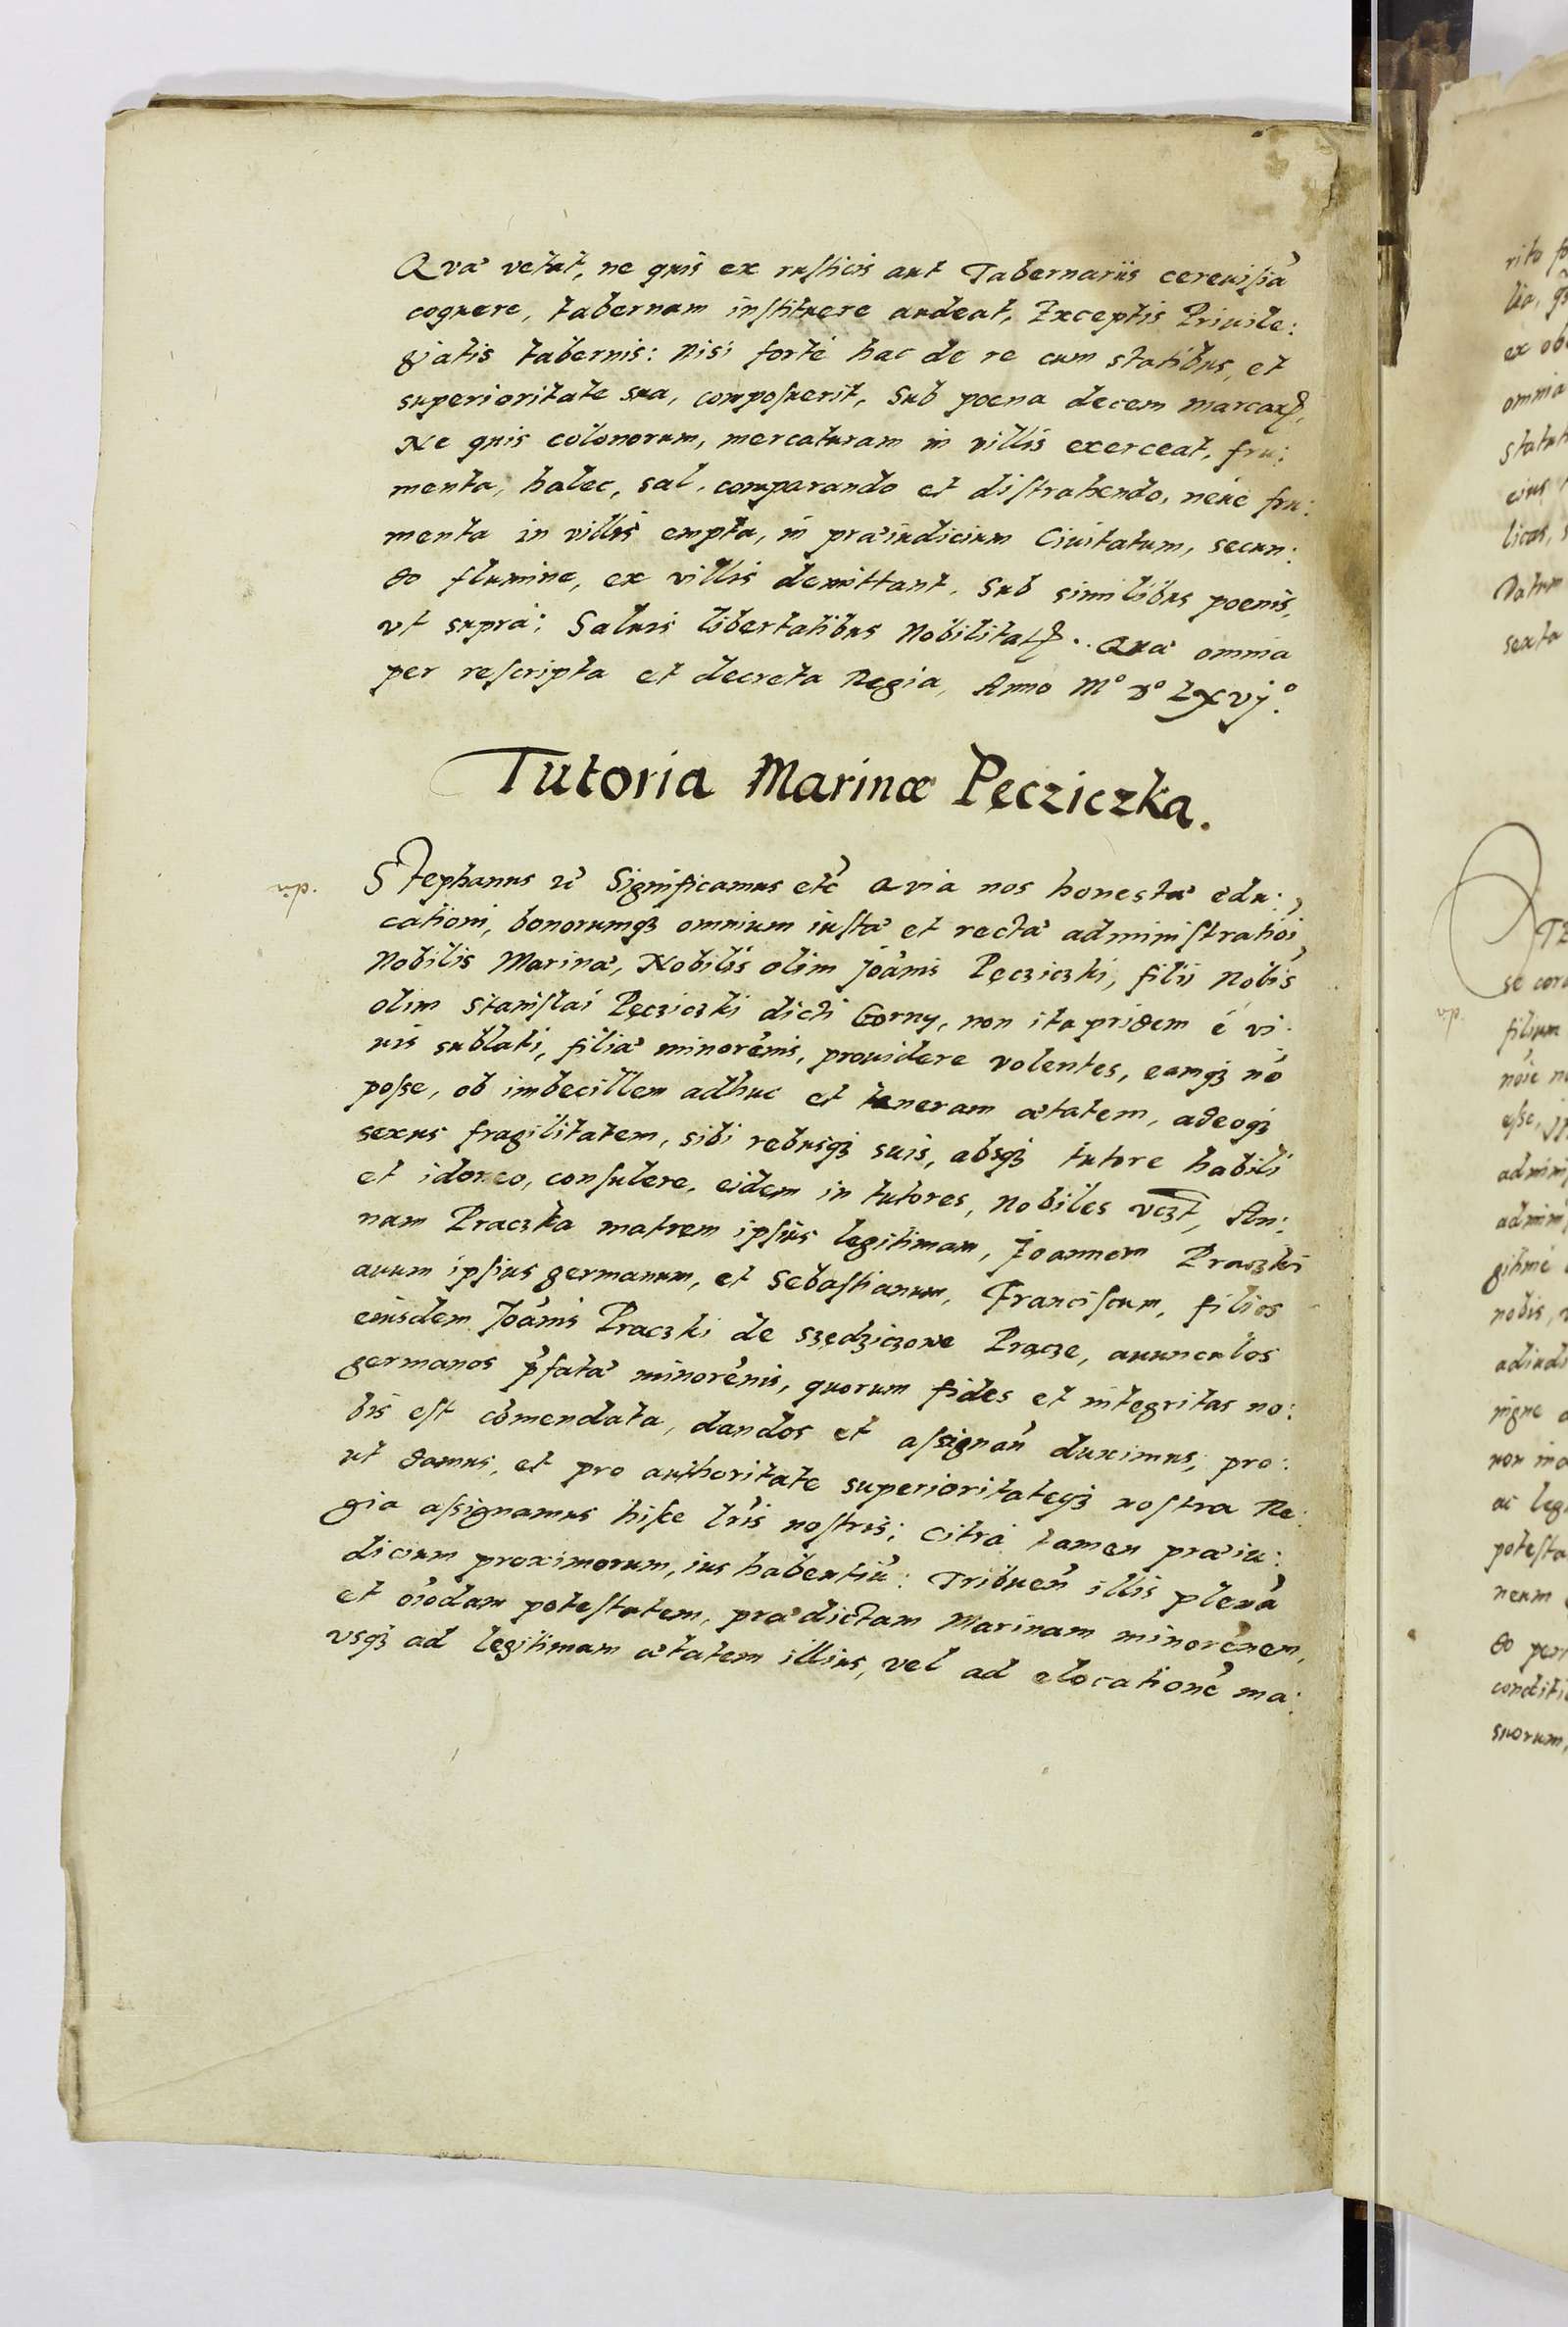 Quæ vetat, ne quis ex rusticis aut Tabernariis cereuisiā
coquere, tabernam instituere audeat, Exceptis Priuile:
giatis tabernis: nisi fortè hac de re cum statibus, et
superioritate sua, composuerit, Sub poena decem marcarꝝ,
Ne quis colonorum, mercaturam in villis exerceat, fru:
menta, halec, sal, comparando et distrahendo, neue fru:
menta in villis empta, in præiudicium Ciuitatum, secun:
do flumine, ex villis demittant, Sub similibus poenis,
vt supra: Saluis libertatibus Nobilitatꝭ. Quæ omnia
per rescripta et decreta Regia, Anno Mº Dº LXVIº.
Tutoria Marinæ Pęcziczka.
dip.
Stephanus ꝛc̄ Significamus etc̄ Quia nos honestæ edu:
cationi, bonorumqꝫ omnium iustæ et rectæ administratiōi
Nobilis Marinæ, Nobilis olim Joānis Pęcziczki, filii Nobis̄
olim Stanislai Pęcziczki dicti Gorny, non ita pridem è vi:
uis sublati, filiæ minorēnis, prouidere volentes, eamqꝫ nō
posse, ob imbecillem adhuc et teneram ætatem, adeoqꝫ
sexus fragilitatem, sibi rebusqꝫ suis, absqꝫ tutore habili
et idoneo, consulere, eidem in tutores, Nobiles vczt̄, An:
nam Praczka matrem ipsius legitimam, Joannem Praczki
auum ipsius germanum, et Sebastianum, Franciscum, filios
eiusdem Joānis Praczki de Szędziczowe Pracze, auunculos
germanos p̄fatæ minorēnis, quorum fides et integritas no:
bis est cōmendata, dandos et assignan̄ duximus, pro:
ut damus, et pro authoritate superioritateqꝫ nostra Re:
gia assignamus hisce lr̄is nostris; Citra tamen præiu:
dicium proximorum, ius habentiū: Tribuen̄ illis plenā
et oi̅odam potestatem, prædictam Marinam minorēnem,
vsqꝫ ad legitimam ætatem illius, vel ad elocationē ma: